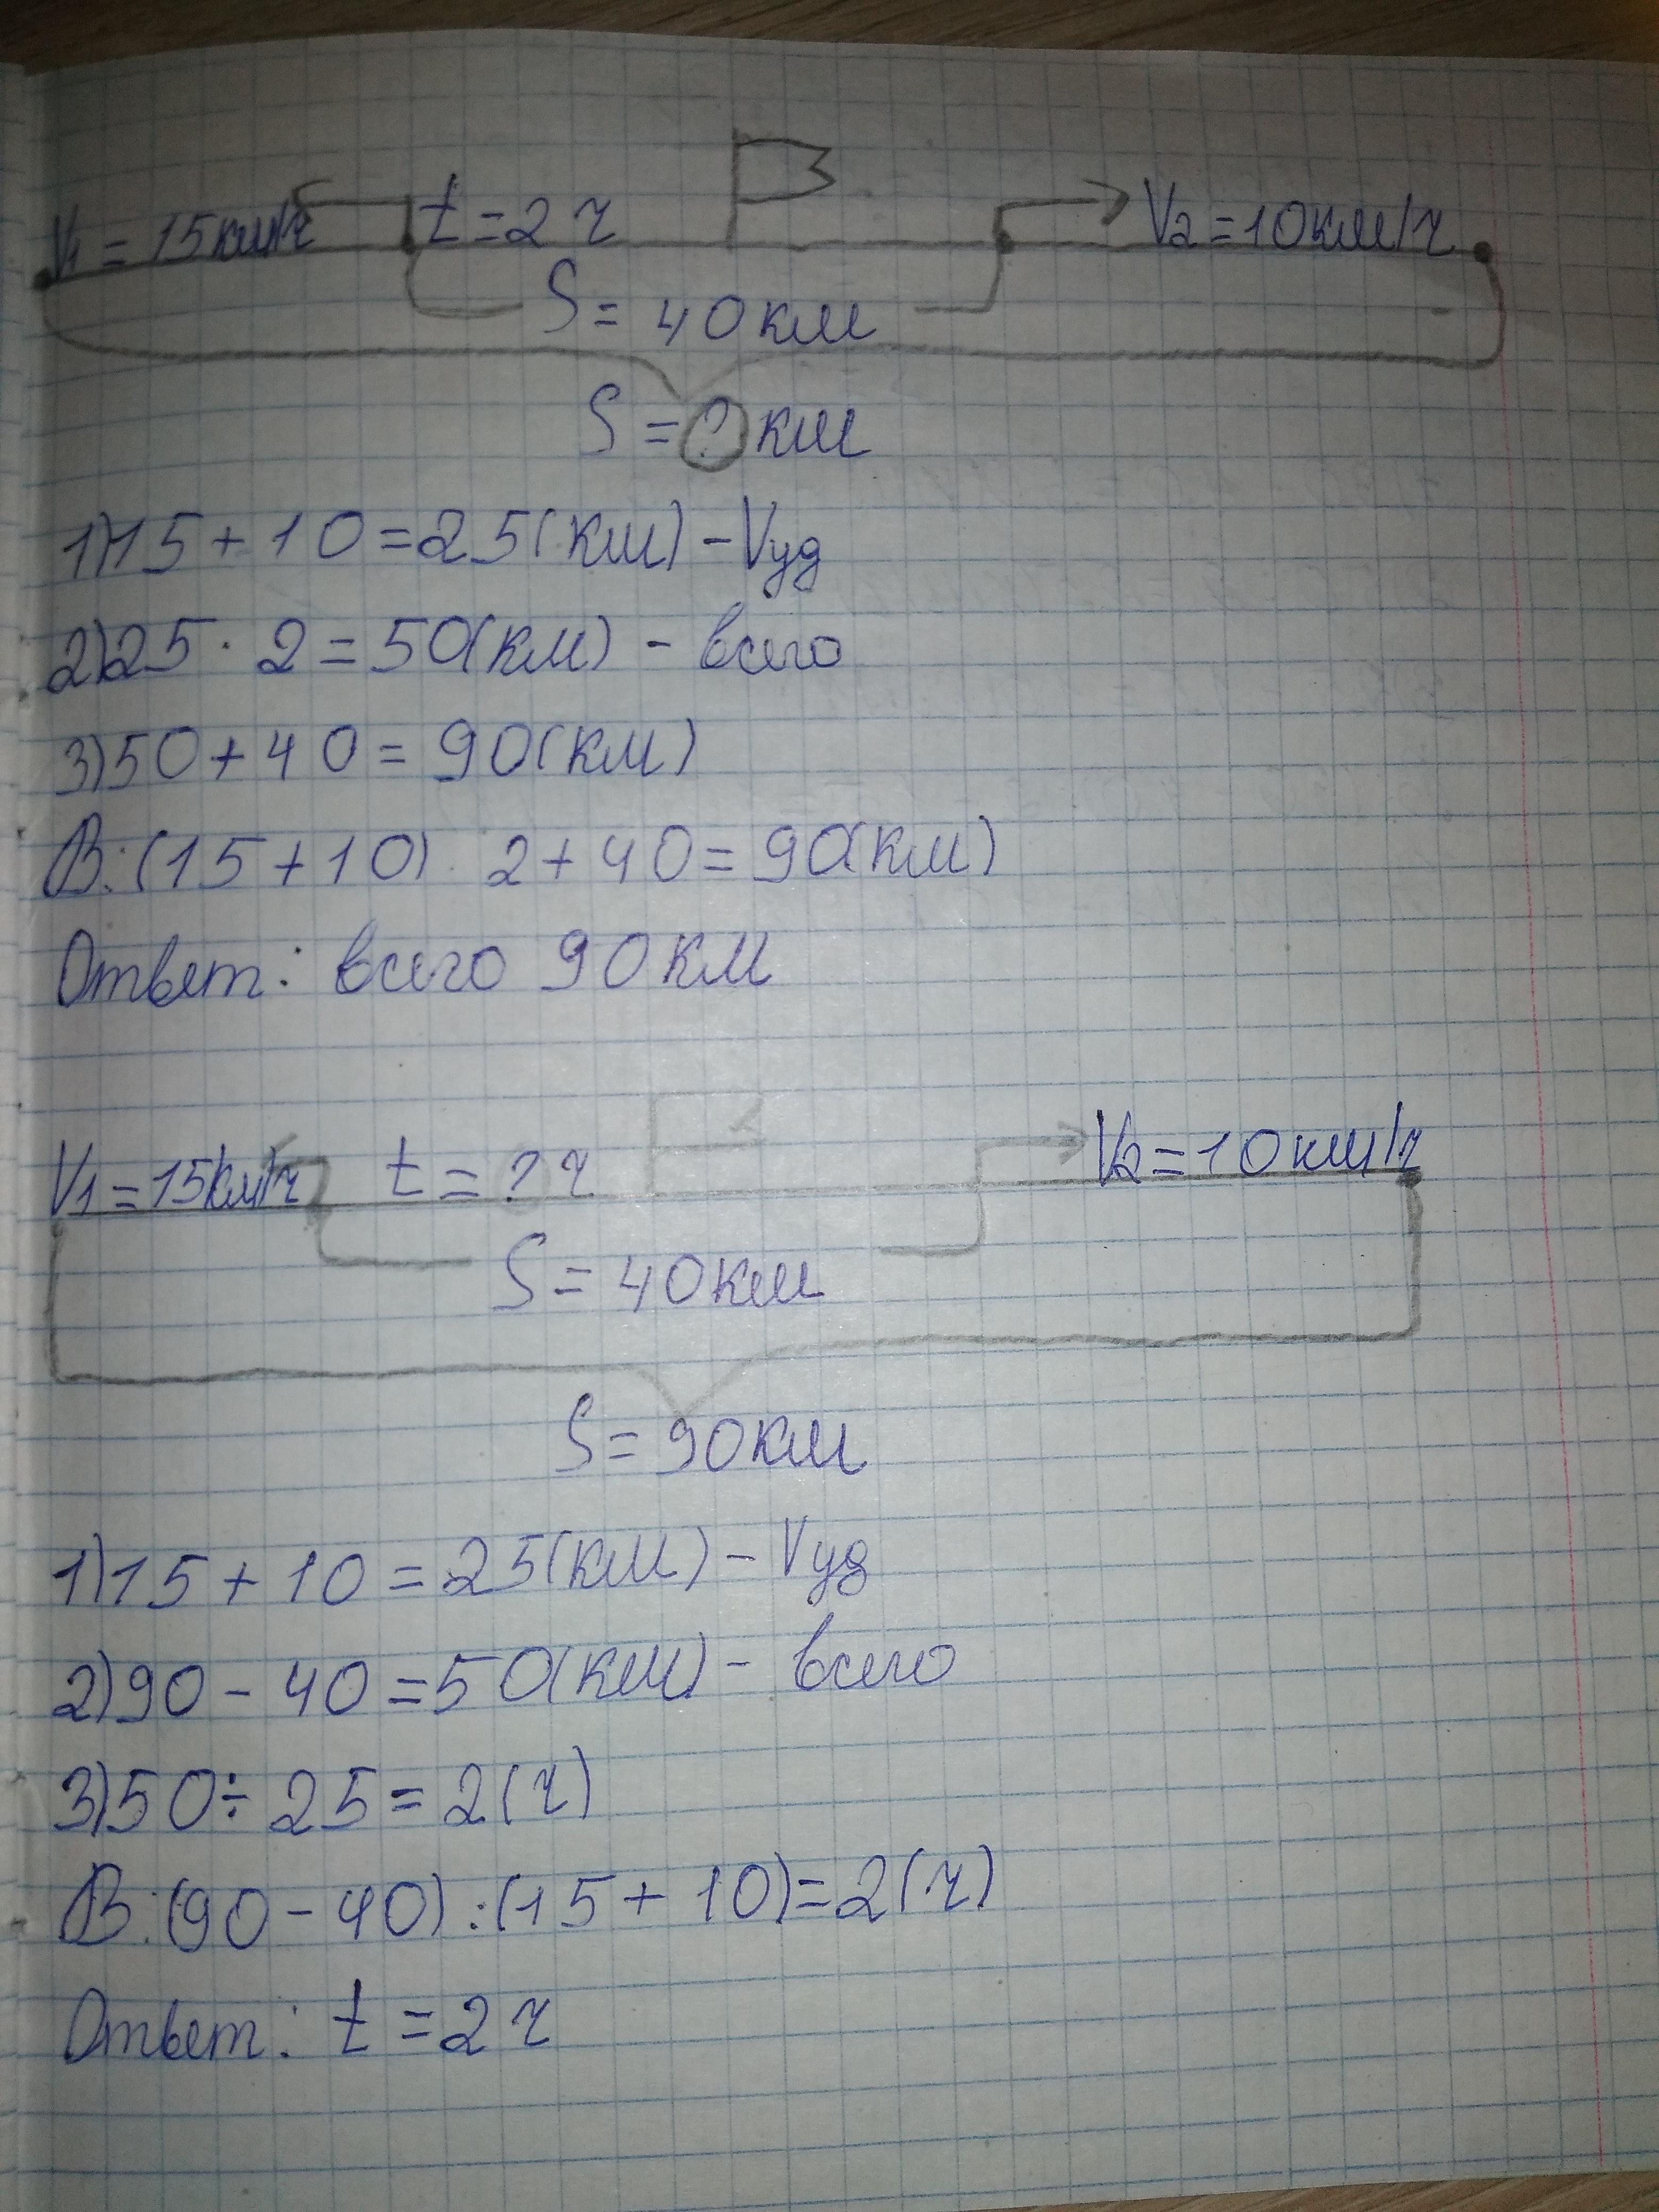 V₁ = 15км/ч t = 2 ч V₂ = 10км/ч
S = 40 км
S = ? км
1) 15 + 10 = 25 (км) - Vуд
2) 25 · 2 = 50 (км) - всего
3) 50 + 40 = 90 (км)
В: (15 + 10) · 2 + 40 = 90 (км)
Ответ: всего 90 км
V₁ = 15км/ч t = ? ч V₂ = 10 км/ч
S = 40 км
S = 90 км
1) 15 + 10 = 25 (км) - Vуд
2) 90 - 40 = 50 (км) - всего
3) 50 ÷ 25 = 2 (ч)
В: (90 - 40) : (15 + 10) = 2 (ч)
Ответ: t = 2 ч